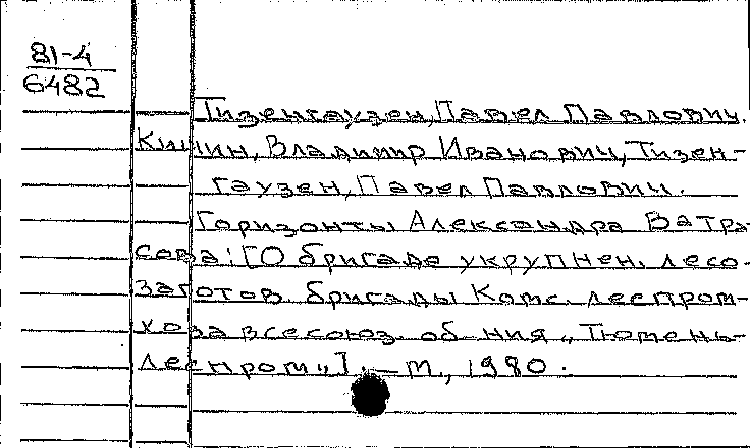 81-4
6482
Тизенгаузен, Павел Павлович.
Кишин, Владимир Иванович, Тизен-
гаузен, Павел Павлович.
Горизонты Александра Ватра-
сова: [О бригаде укрупнен. лесо-
заготов. бригады Комс. леспром-
хоза всесоюз. об-ния „Тюмень-
леспром"]. — Т., 1980.